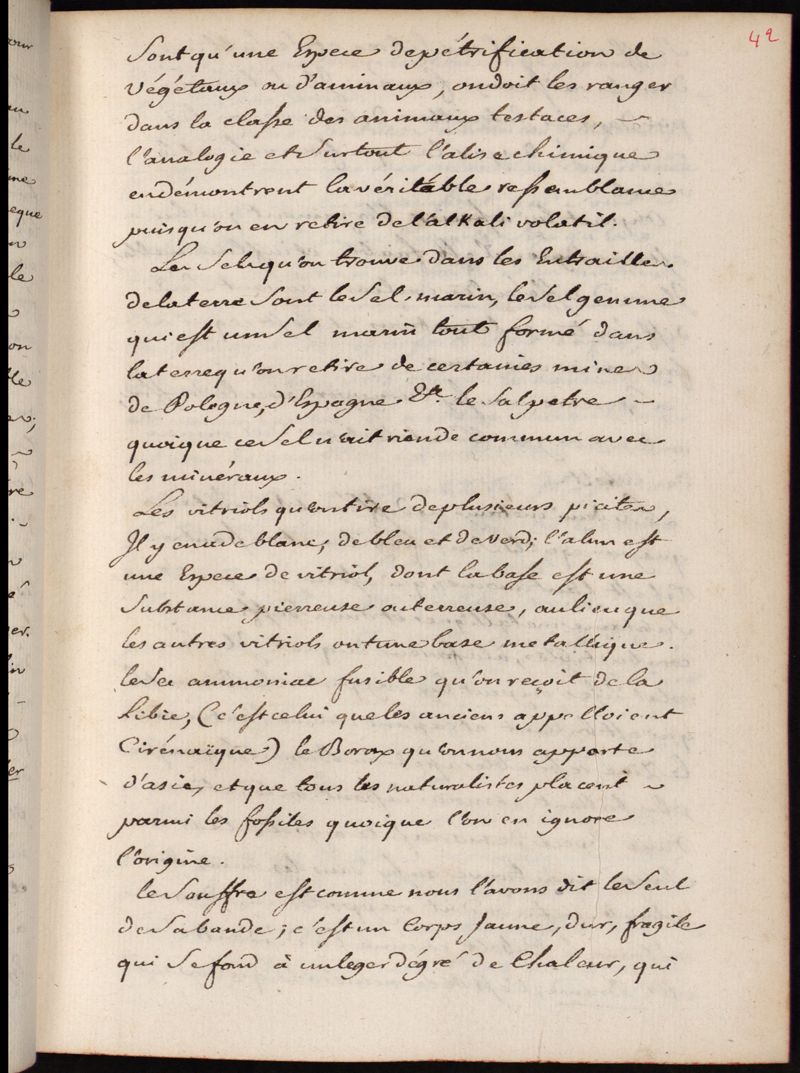 42
sont qu'une Espece de pétrification de
végétaux ou d'aminaux, on doit les ranger
dans la classe des animaux testaces,
l'analogie et surtout l'alise chimique
en démontrent la véritable ressemblance
puisqu'on en retire de l'alkali volatil.
Les Sels qu'on trouve dans les Entrailles
de la terre sont le sel marin, le sel gemme
qui est un sel marin tout formé dans
la terre qu'on retire de certaines mines
de Pologne, d'Espagne &c. le salpetre
quoique ce sel n'ait rien de commun avec
les minéraux.
Les vitriols qu'on tire de plusieurs pirites,
Il y en a de blanc, de bleu et de verd; l'alun est
une Espece de vitriol, dont la base est une
substance pierreuse ou terreuse, au lieu que
les autres vitriols ont une base metallique.
le sel ammoniac fusible qu'on reçoit de la
Libie, (c'est celui que les anciens appelloient
Cirénaïque) le Borax qu'on nous apporte
d'asie, et que tous les naturalistes placent
parmi les fossiles quoique l'on en ignore
l'origine.
le souffre est comme nous l'avons dit le seul
de sa bande; c'est un Corps Jaune, dur, fragile
qui se fond à un leger dégré de Chaleur, qui